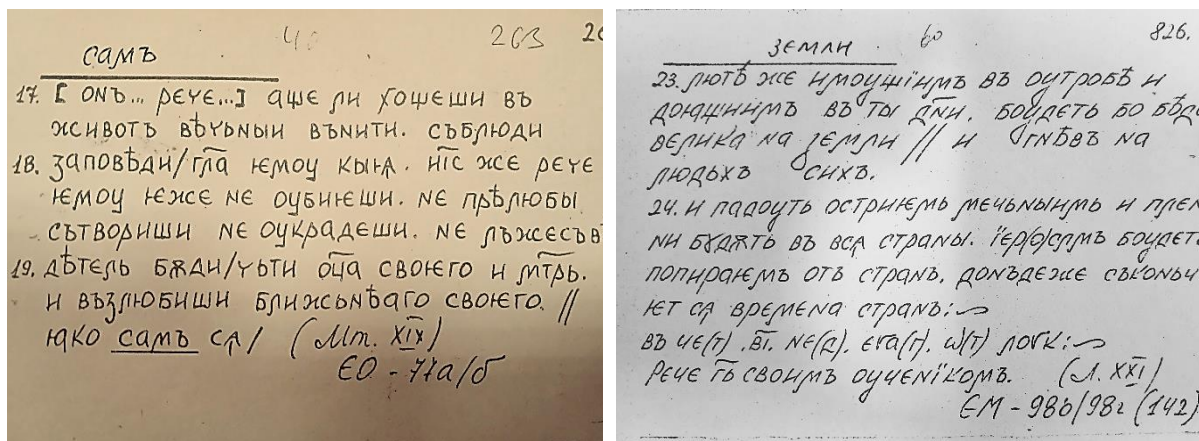 40 263 20
самъ
17. [ онъ... рече...] аще ли хощеши въ
животъ вѣчьныи вънити. съблюди
18. заповѣди/гл҃а ѥмоу кыꙗ. н҃іс же рече
ѥмоу ѥже не оубиѥши. не прѣлюбы
сътвориши не оукрадеши. не лъжесъв
19. дѣтель бѫди/чьти оц҃а своѥго и мт҃рь.
и възлюбиши ближьнѣаго своѥго. //
ꙗко самъ сѧ/ (Мт. XIX)
ЄО - 77а/б
земли 60 826.
23. лютѣ же имоущіимъ въ оутробѣ и
доꙗщиимъ въ ты дн҃и. боудеть бо бѣда
велика на земли // и гнѣвъ на
людьхъ сихъ.
24. и падоуть остриѥмь мечьныимь и плен
ни бѫдѫть въ всѧ страны. їер(о)слмъ боудеть
попираѥмъ отъ странъ. доньдеже съконьч
ѥт сѧ времена странъ:~
въ че(т) .в҃і. не(д). єѵа(г). ѡ(т) лоѵк:~
рече г҃ь своимъ оученїкомъ. (Л. XXI)
ЄМ - 98в/98г (142)